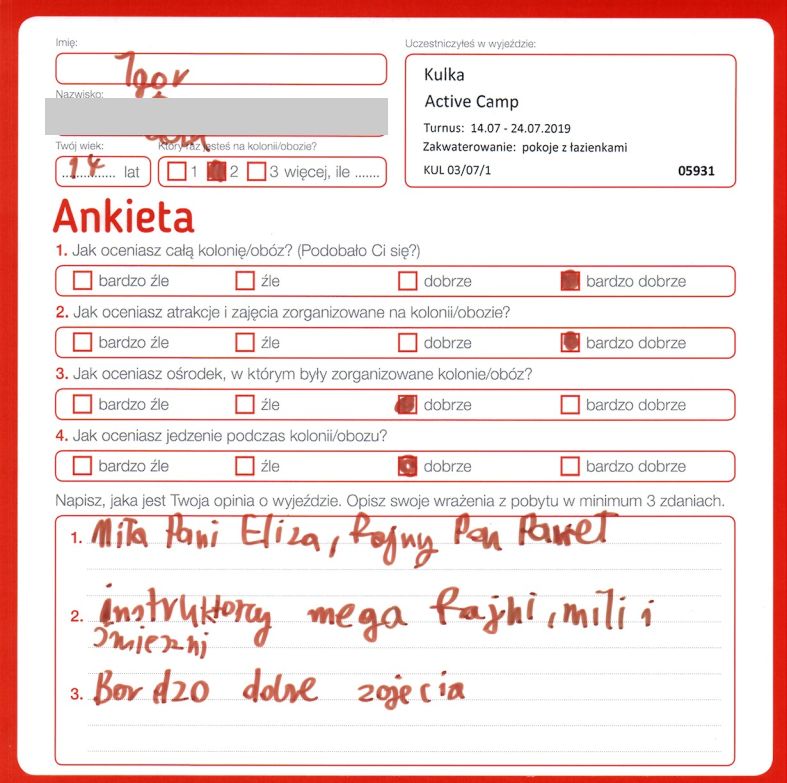 Imię:
Igor
Nazwisko:
Twój wiek:
14 lat
Który raz jesteś na kolonii/obozie?
1 2 3 więcej, ile .......
Uczestniczyłeś w wyjeździe:
Kulka
Active Camp
Turnus: 14.07 - 24.07.2019
Zakwaterowanie: pokoje z łazienkami
KUL 03/07/1 05931
Ankieta
1. Jak oceniasz całą kolonię/obóz? (Podobało Ci się?)
bardzo źle źle dobrze bardzo dobrze
2. Jak oceniasz atrakcje i zajęcia zorganizowane na kolonii/obozie?
bardzo źle źle dobrze bardzo dobrze
3. Jak oceniasz ośrodek, w którym były zorganizowane kolonie/obóz?
bardzo źle źle dobrze bardzo dobrze
4. Jak oceniasz jedzenie podczas kolonii/obozu?
bardzo źle źle dobrze bardzo dobrze
Napisz, jaka jest Twoja opinia o wyjeździe. Opisz swoje wrażenia z pobytu w minimum 3 zdaniach.
1. Miła Pani Eliza, Fajny Pan Paweł
2. instruktorzy mega fajni, mili i
śmieszni
3. Bardzo dobre zajęcia